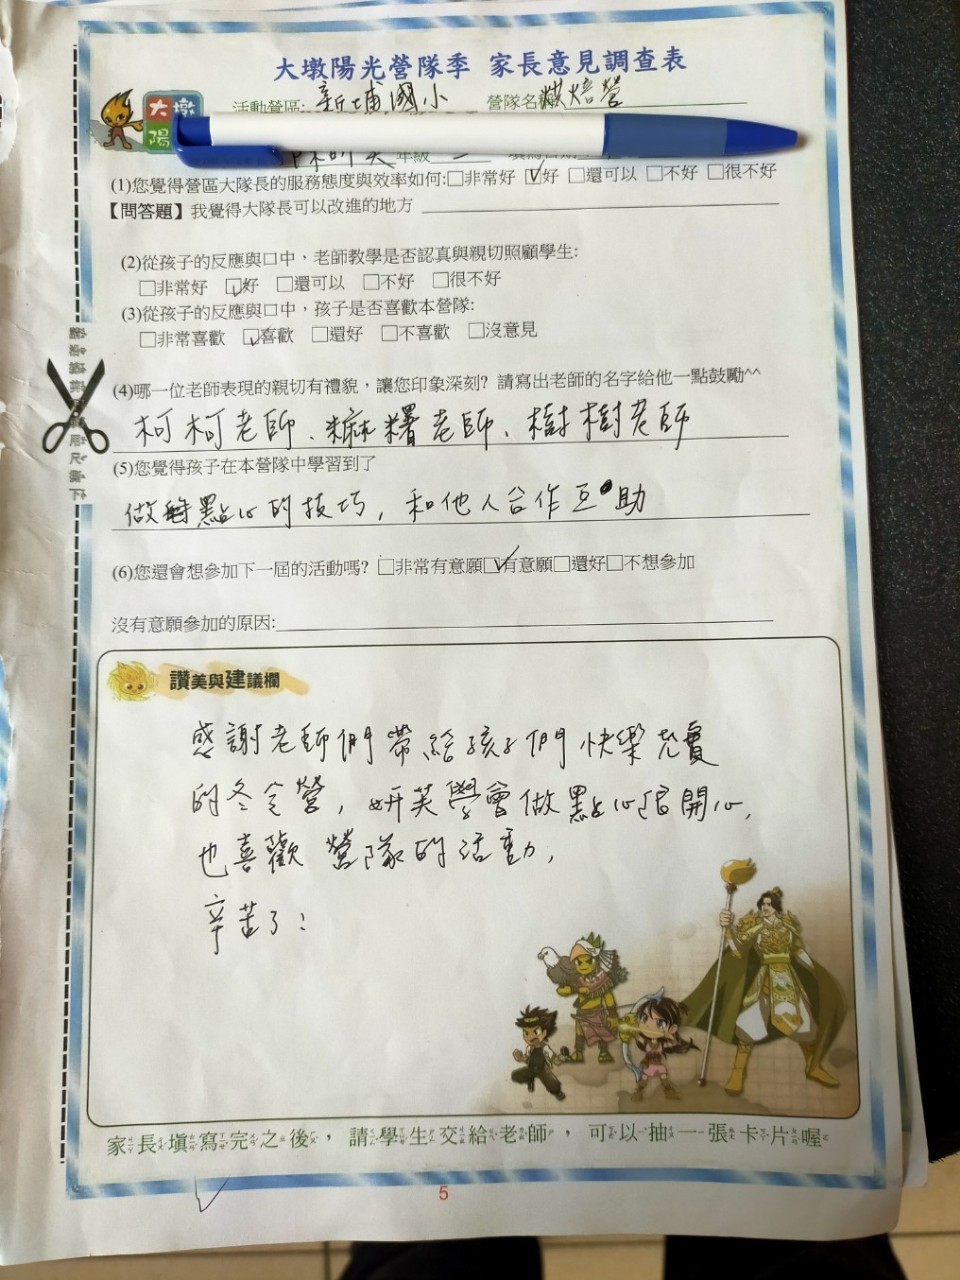 大墩陽光營隊季 家長意見調查表
大墩
陽
活動營區: 新埔國小 營隊名稱 烘焙營
年級
(1)您覺得營區大隊長的服務態度與效率如何:□非常好 ☑好 □還可以 □不好 □很不好
【問答題】我覺得大隊長可以改進的地方
(2)從孩子的反應與口中，老師教學是否認真與親切照顧學生:
□非常好 ☑好 □還可以 □不好 □很不好
(3)從孩子的反應與口中，孩子是否喜歡本營隊:
□非常喜歡 ☑喜歡 □還好 □不喜歡 □沒意見
(4)哪一位老師表現的親切有禮貌，讓您印象深刻? 請寫出老師的名字給他一點鼓勵^^
柯柯老師、麻糬老師、樹樹老師
(5)您覺得孩子在本營隊中學習到了
做點心的技巧, 和他人合作互助
(6)您還會想參加下一屆的活動嗎? □非常有意願☑有意願□還好□不想參加
沒有意願參加的原因:
讚美與建議欄
感謝老師們帶給孩子們快樂充實
的冬令營, 妍芙學會做點心很開心,
也喜歡營隊的活動,
辛苦了!
家長填寫完之後，請學生交給老師，可以抽一張卡片喔
5